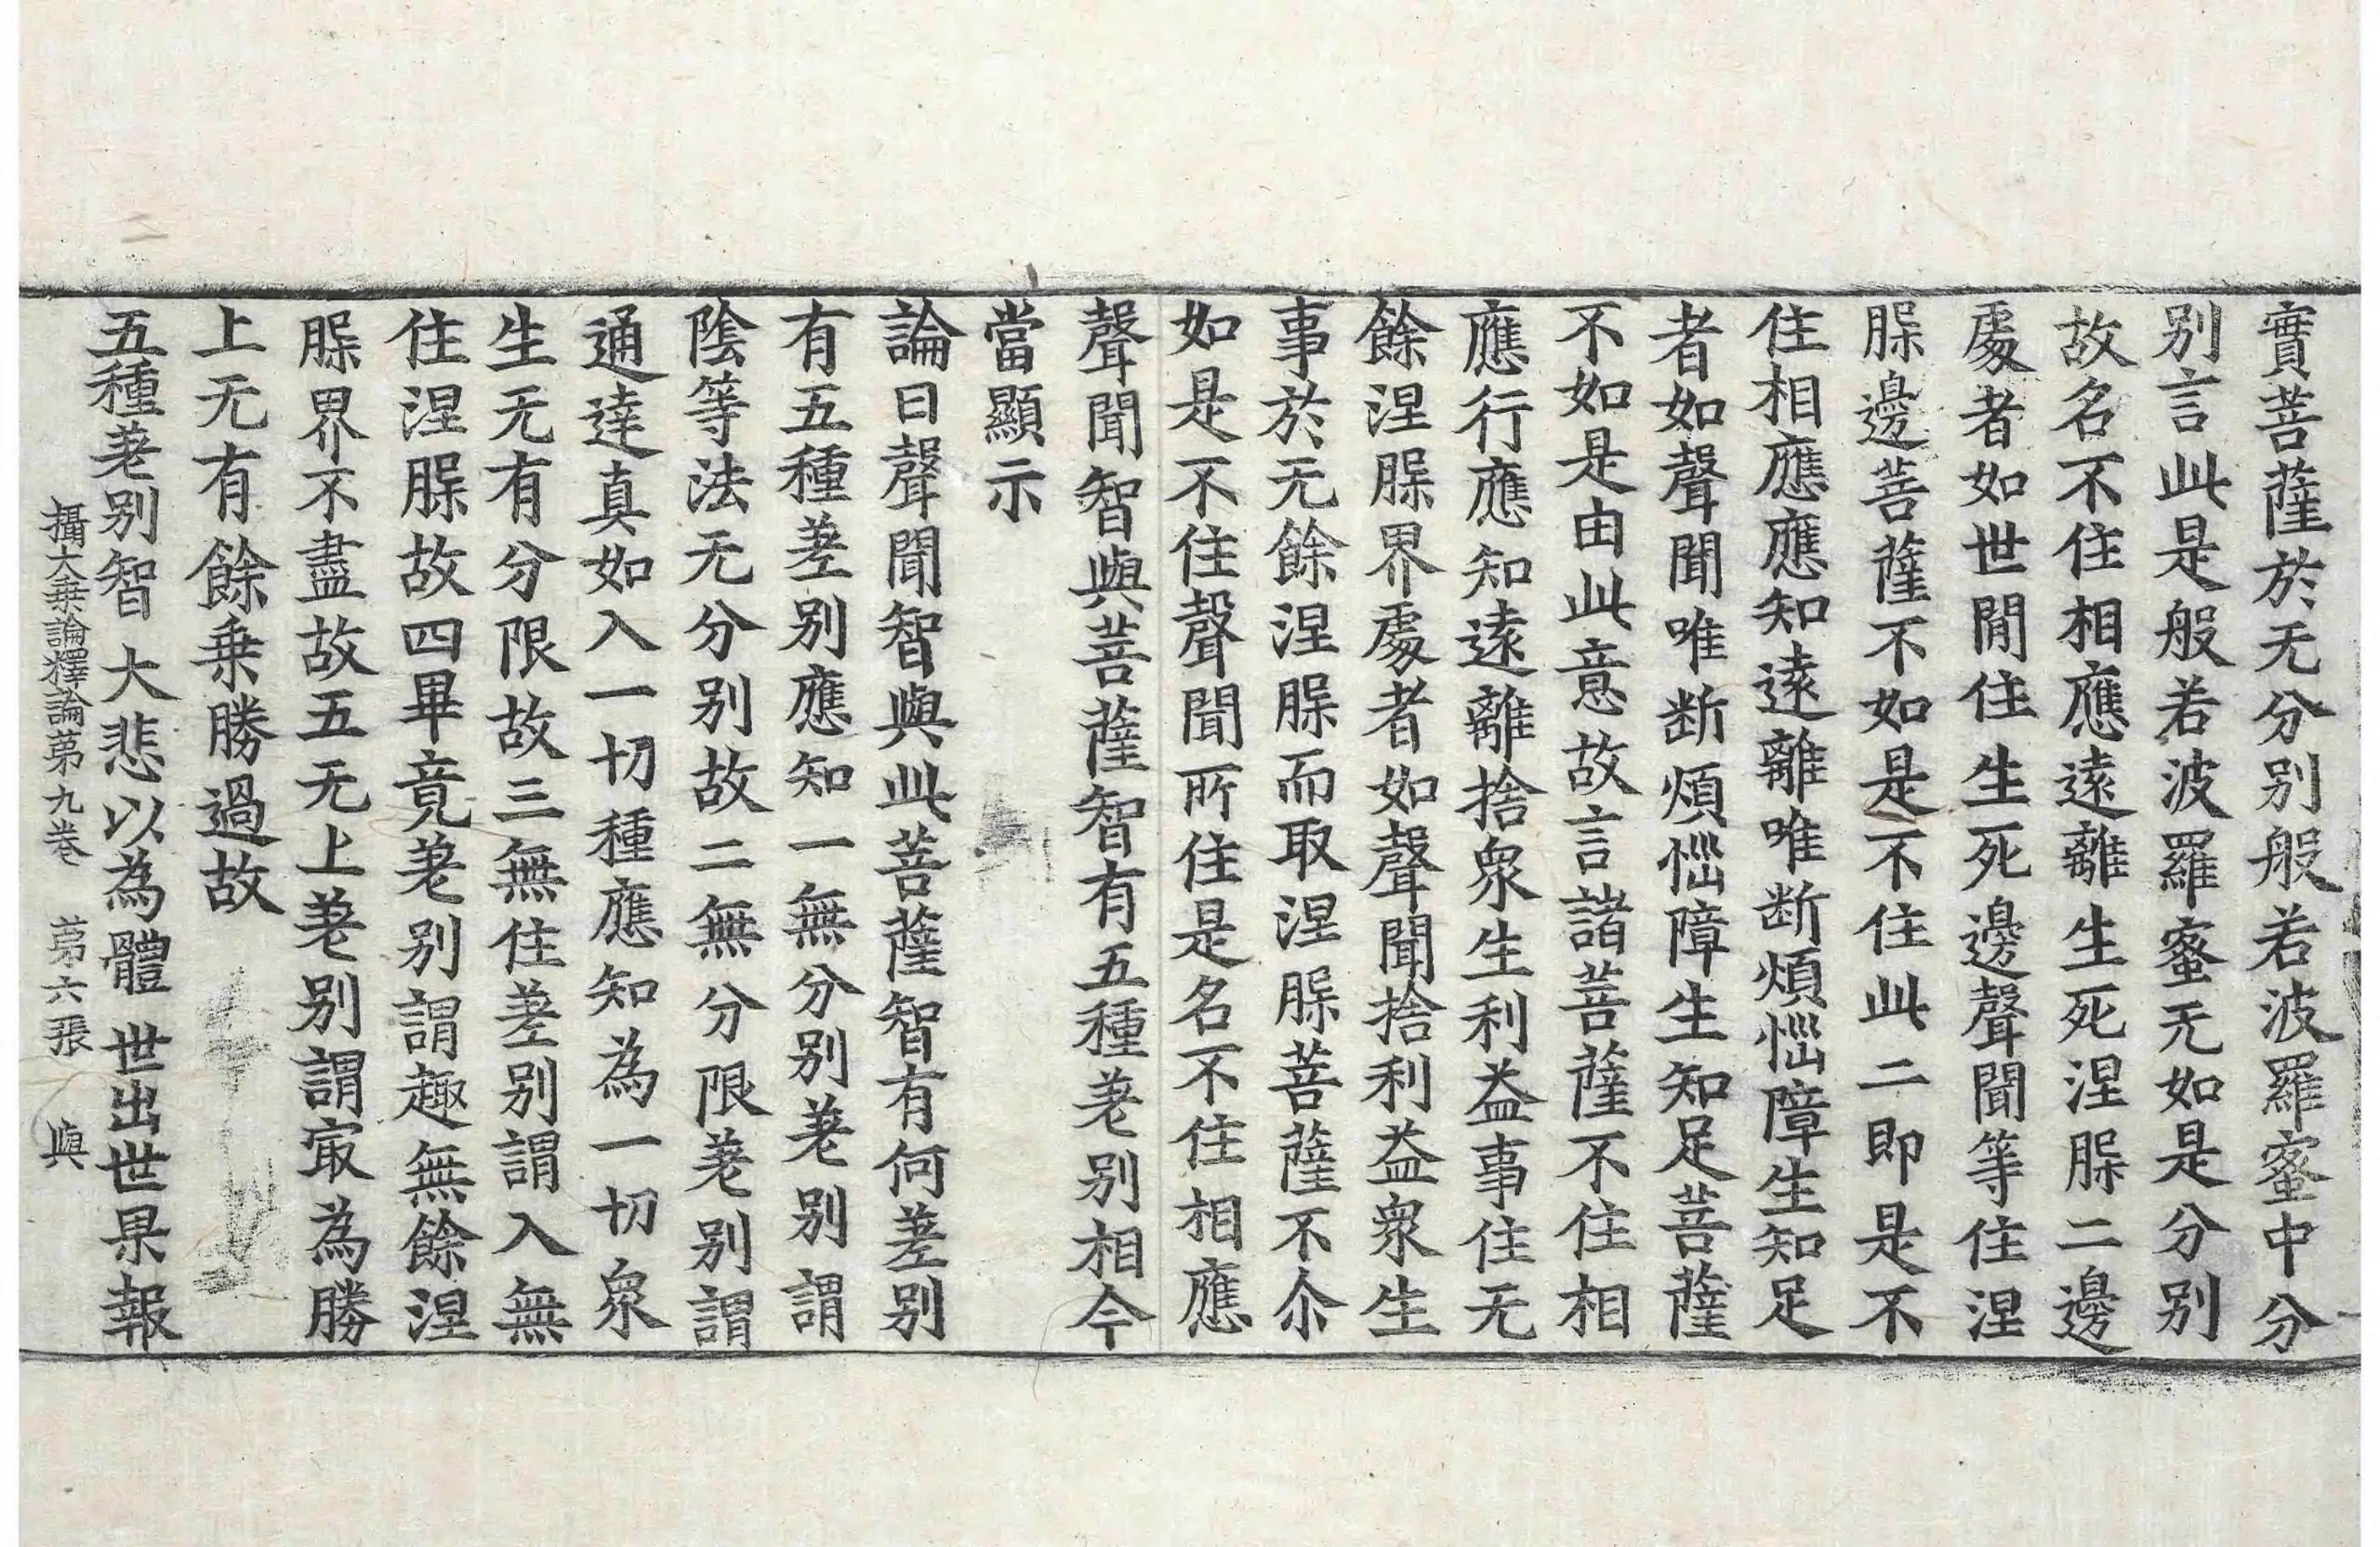 實菩薩於无分别般若波羅蜜中分
别言此是般若波羅蜜无如是分别
故名不住相應遠離生死涅脲二邊
處者如世閒住生死邊聲聞等住涅
脲邊菩薩不如是不住此二即是不
住相應應知遠離唯断煩惱障生知足
者如聲聞唯断煩惱障生知足菩薩
不如是由此意故言諸菩薩不住相
應行應知遠離捨衆生利益事住无
餘涅脲界處者如聲聞捨利益衆生
事於无餘涅脲而取涅脲菩薩不尒
如是不住聲聞所住是名不住相應
聲聞智與菩薩智有五種差别相今
當顯示
論曰聲聞智與此菩薩智有何差别
有五種差别應知一無分别差别謂
陰等法无分别故二無分限差别謂
通達真如入一切種應知為一切衆
生无有分限故三無住差别謂入無
住涅脲故四畢竟差别謂趣無餘涅
脲界不盡故五无上差别謂㝡為勝
上无有餘乗勝過故
五種差别智 大悲以為體 世出世果報
攝大乗論釋論苐九卷 苐六張 與